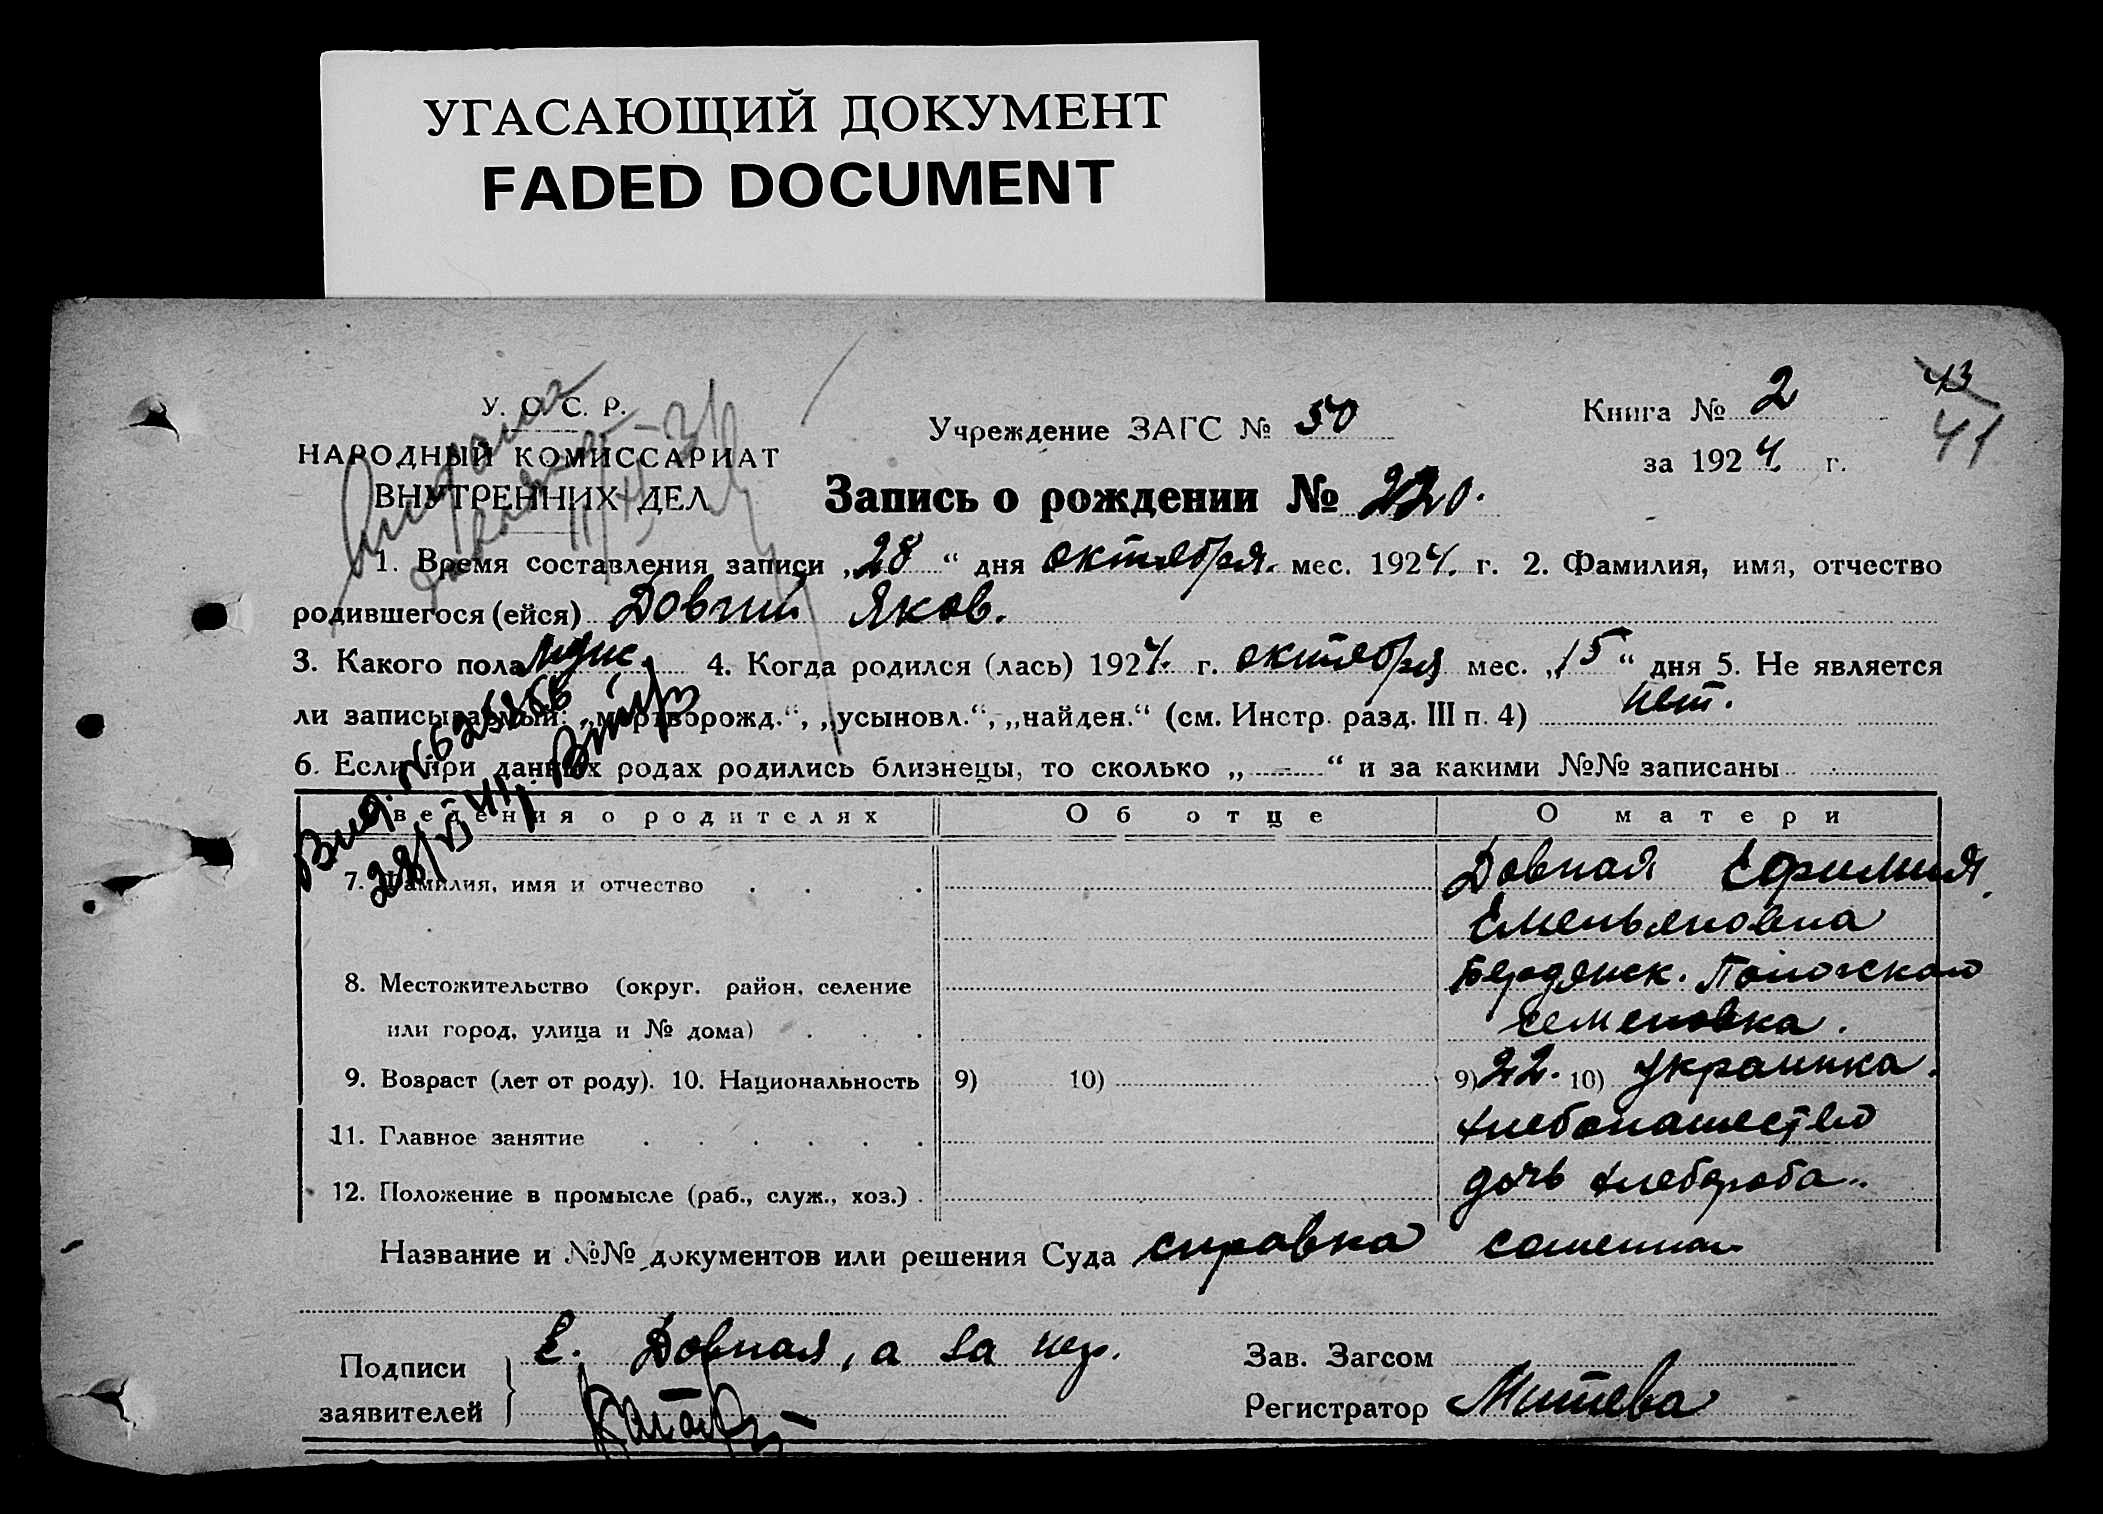 УГАСАЮЩИЙ ДОКУМЕНТ
FADED DOCUMENT
43
41
У. С. С. Р.
НАРОДНЫЙ КОМИССАРИАТ
ВНУТРЕННИХ ДЕЛ
Учреждение ЗАГС № 50
Книга № 2
за 1924 г.
Запись о рождении № 220.
1. Время составления записи „28“ дня октября мес. 1924. г. 2. Фамилия, имя, отчество
родившегося (ейся) Довгий Яков.
3. Какого пола муж. 4. Когда родился (лась) 1924. г. октября мес. „15“ дня 5. Не является
ли записываемый: „мертворожд.“, „усыновл.“, „найден.“ (см. Инстр. разд. III п. 4) нет.
6. Если при данных родах родились близнецы, то сколько „ - “ и за какими №№ записаны
Сведения о родителях Об отце О матери
7. Фамилия, имя и отчество Довгая Ефимия
Емельяновна
8. Местожительство (округ. район, селение Бердянск. Пологского
или город, улица и № дома) Семеновка.
9. Возраст (лет от роду). 10. Национальность 9) 10) 9) 22. 10) украинка.
11. Главное занятие хлебопашество
12. Положение в промысле (раб., служ., хоз.) дочь хлебороба.
Название и №№ документов или решения Суда справка
Подписи
заявителей
Е. Довгая, а за нер.
Зав. Загсом
Регистратор Митева